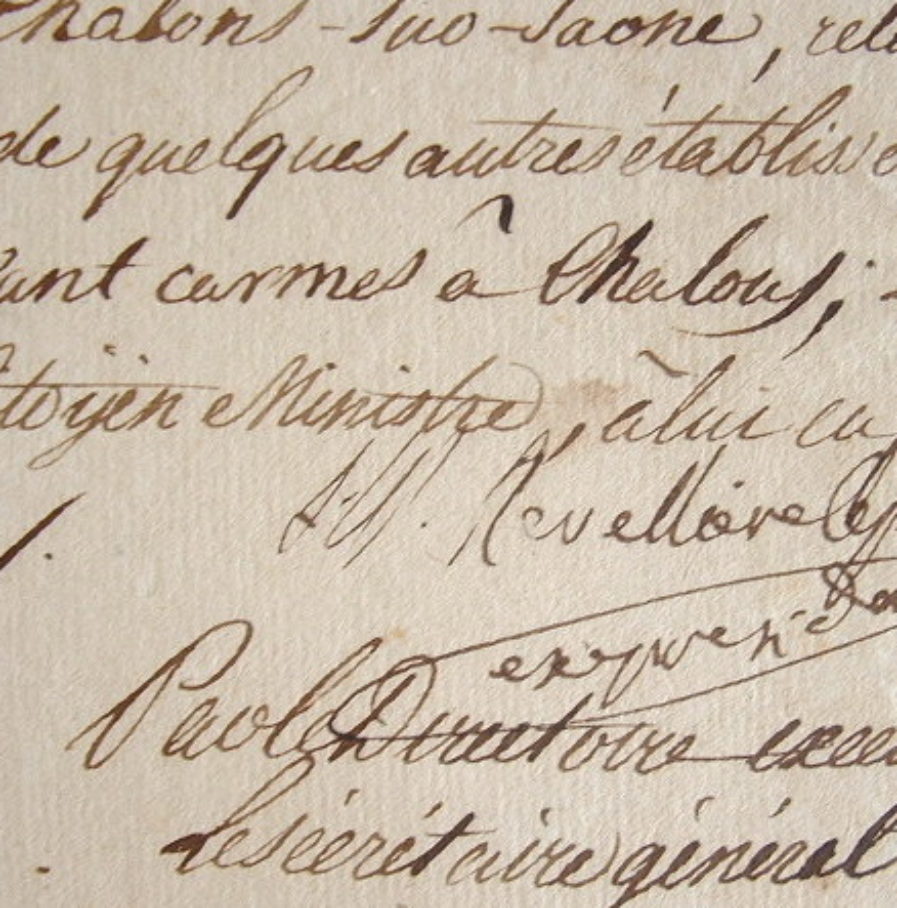 Chalons-sur-Saone, rela
de quelques autres établisse
vant carmes à Chalons;
itoyen Ministre, à lui
Revelliere lep
Par le Directoire exec
Le sécrétaire général